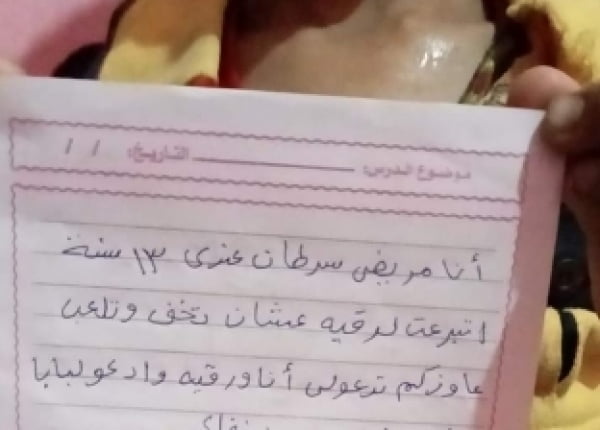 موضوع الدرس: التاريخ: / /
أنا مريض سرطان عندى ١٣ سنة
اتبرعت لرقيه عشان تخف وتلعب
عاوزكم تدعولى أنا ورقيه وادعو لبابا